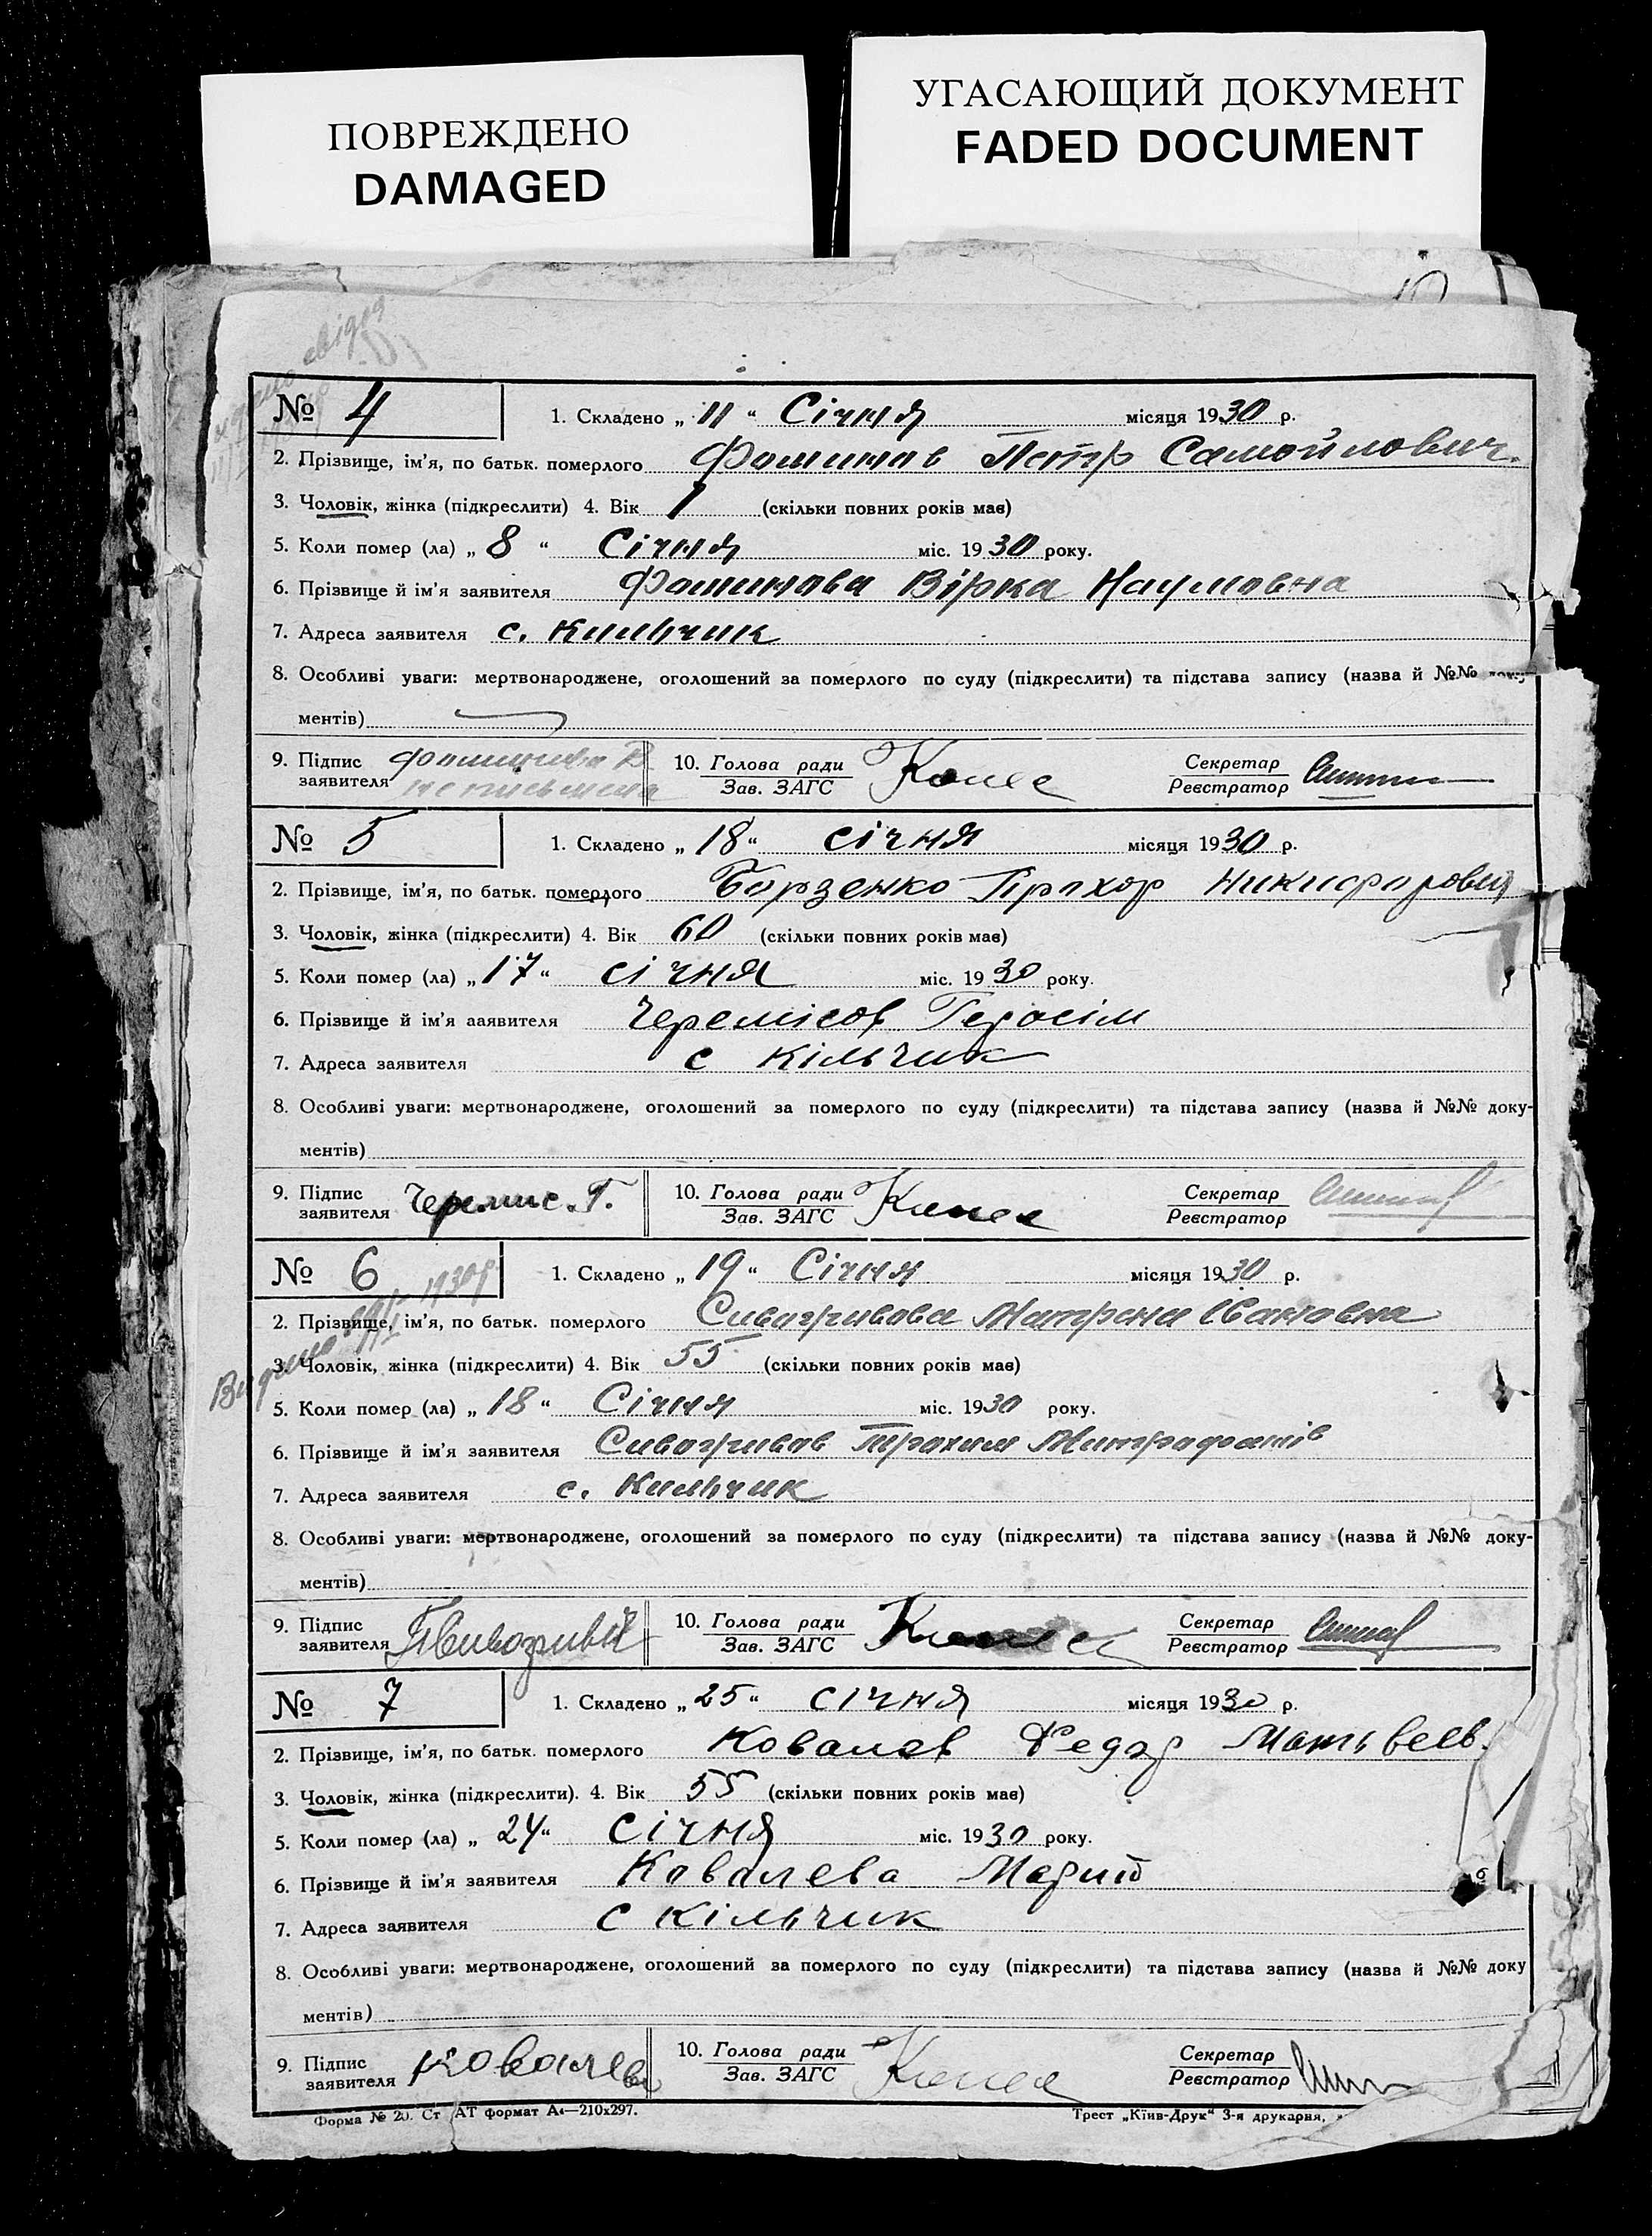 ПОВРЕЖДЕНО
DAMAGED
УГАСАЮЩИЙ ДОКУМЕНТ
FADED DOCUMENT
№ 4 1. Складено „ 11 “ Січня місяця 1930 р.
2. Прізвище, ім’я, по батьк. померлого Фошинов Петр Самойлович.
3. Чоловік, жінка (підкреслити) 4. Вік 1 (скільки повних років має)
5. Коли помер (ла) „ 8 “ Січня міс. 1930 року.
6. Прізвище й ім’я заявителя Фошинова Вірка Наумовна
7. Адреса заявителя с. Кильчик
8. Особливі уваги: мертвонароджене, оголошений за померлого по суду (підкреслити) та підстава запису (назва й №№ доку-
ментів)
9. Підпис заявителя Фошинова В. неписьмена 10. Голова ради Зав. ЗАГС Секретар Реєстратор
№ 5 1. Складено „ 18 “ січня місяця 1930 р.
2. Прізвище, ім’я, по батьк. померлого Борзенко Прохор Никифорович
3. Чоловік, жінка (підкреслити) 4. Вік 60 (скільки повних років має)
5. Коли помер (ла) „ 17 “ січня міс. 1930 року.
6. Прізвище й ім’я ааявителя Черемісов Герасім
7. Адреса заявителя с Кільчик
8. Особливі уваги: мертвонароджене, оголошений за померлого по суду (підкреслити) та підстава запису (назва й №№ доку-
ментів)
9. Підпис заявителя Черемис. Г. 10. Голова ради Зав. ЗАГС Секретар Реєстратор
№ 6 1. Складено „ 19 “ Січня місяця 1930 р.
2. Прізвище, ім’я, по батьк. померлого Сивогривова Матрона Івановна
3. Чоловік, жінка (підкреслити) 4. Вік 55 (скільки повних років має)
5. Коли помер (ла) „ 18 “ Січня міс. 1930 року.
6. Прізвище й ім’я заявителя Сивогривов Трохим Митрофанів
7. Адреса заявителя с. Кильчик
8. Особливі уваги: мертвонароджене, оголошений за померлого по суду (підкреслити) та підстава запису (назва й №№ доку-
ментів)
9. Підпис заявителя 10. Голова ради Зав. ЗАГС Секретар Реєстратор
№ 7 1. Складено „ 25 “ січня місяця 1930 р.
2. Прізвище, ім’я, по батьк. померлого Ковалев Федор Матьвеев.
3. Чоловік, жінка (підкреслити). 4. Вік 55 (скільки повних років має)
5. Коли помер (ла) „ 24 “ січня міс. 1930 року.
6. Прізвище й ім’я заявителя Ковалева
7. Адреса заявителя с Кільчик
8. Особливі уваги: мертвонароджене, оголошений за померлого по суду (підкреслити) та підстава запису (назва й №№ доку
ментів)
9. Підпис заявителя Ковалева 10. Голова ради Зав. ЗАГС Секретар Реєстратор
Форма № 20. Ст АТ формат А4—210х297. Трест „Київ-Друк“ 3-я друкарня,